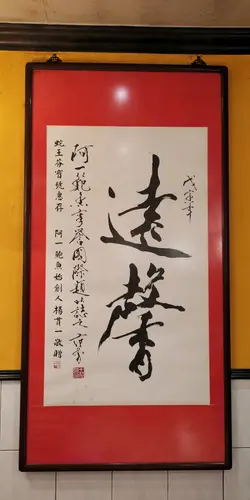 戊寅年
遠馨
阿一鮑魚享譽國際 以誌之
蛇王芬寶號惠存 阿一鮑魚始創人楊貫一敬贈